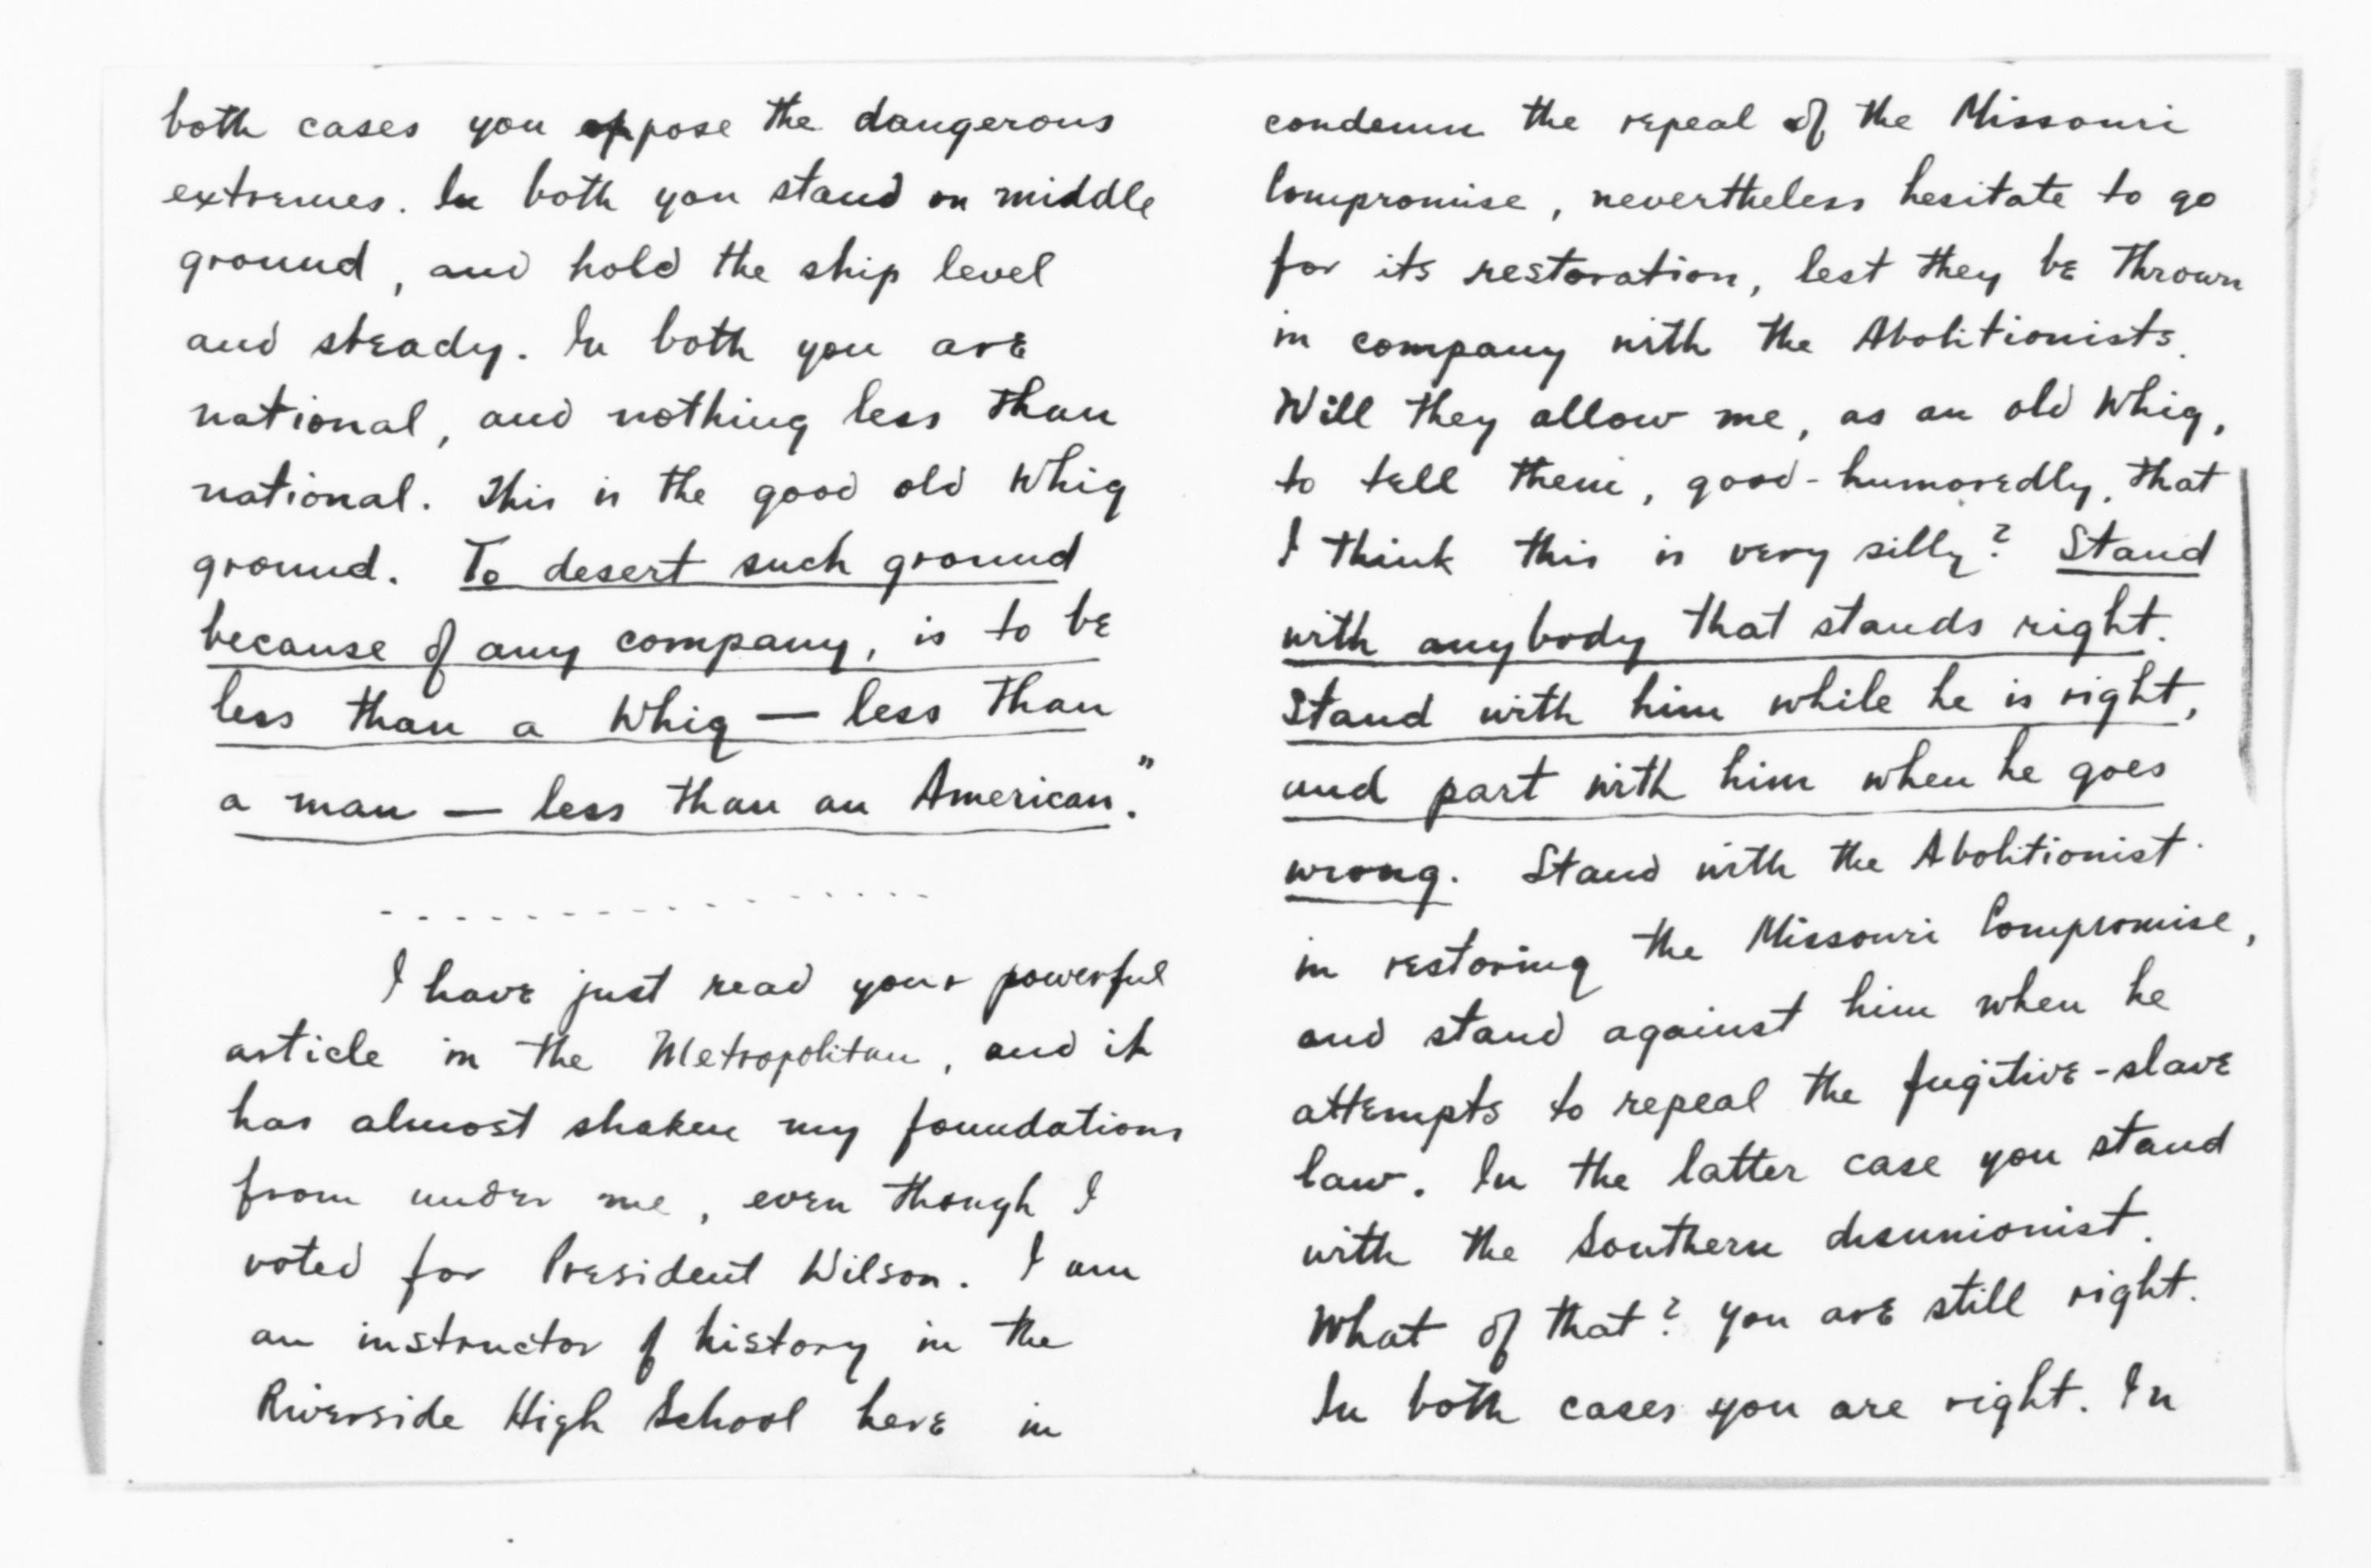 both cases you oppose the dangerous
extremes. In both you stand on middle
ground, and hold the ship level
and steady. In both you are
national, and nothing less than
national. This is the good old Whig
ground. To desert such ground
because of any company, is to be
less than a Whig — less than
a man — less than an American."
I have just read your powerful
article in the Metropolitan, and it
has almost shaken my foundations
from under me, even though I
voted for President Wilson. I am
an instructor of history in the
Riverside High School here in
condemn the repeal of the Missouri
Compromise, nevertheless hesitate to go
for its restoration, lest they be thrown
in company with the Abolitionists.
Will they allow me, as an old Whig,
to tell them, good-humoredly, that
I think this is very silly? Stand
with anybody that stands right.
Stand with him while he is right,
and part with him when he goes
wrong. Stand with the Abolitionist
in restoring the Missouri Compromise,
and stand against him when he
attempts to repeal the fugitive-slave
law. In the latter case you stand
with the Southern disunionist.
What of that? you are still right.
In both cases you are right. In